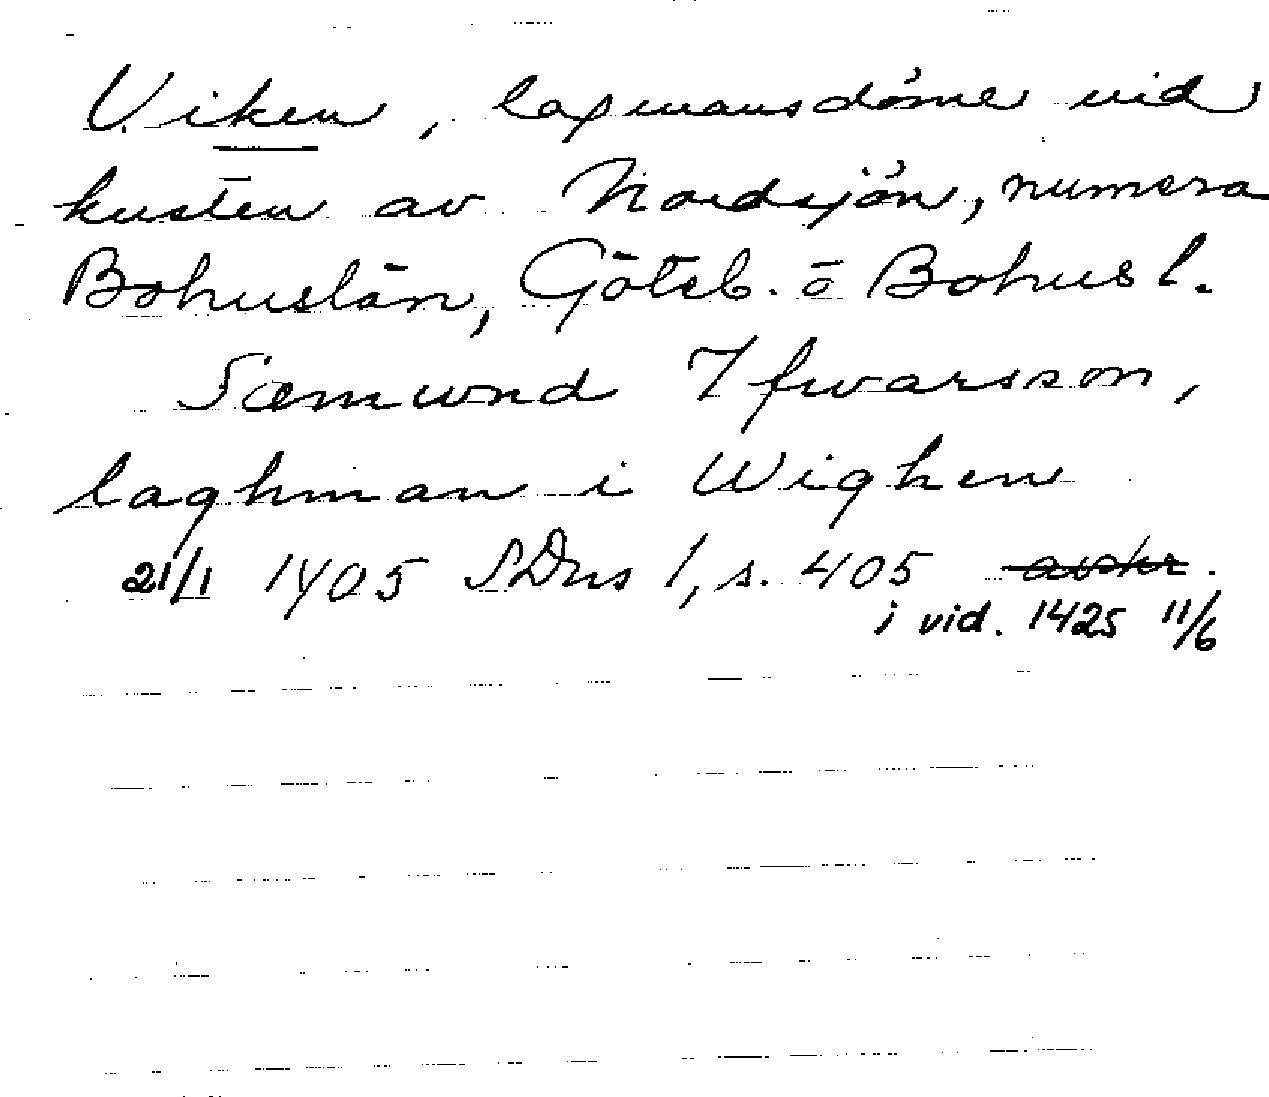 Viken, lagmansdöme vid
kusten av Nordsjön, numera
Bohuslän, Göteb. o Bohusl.
Sæmund Ifwarsson,
laghman i Wighen
21/1 1405 SDns 1, s. 405 avskr.
i vid. 1425 11/6